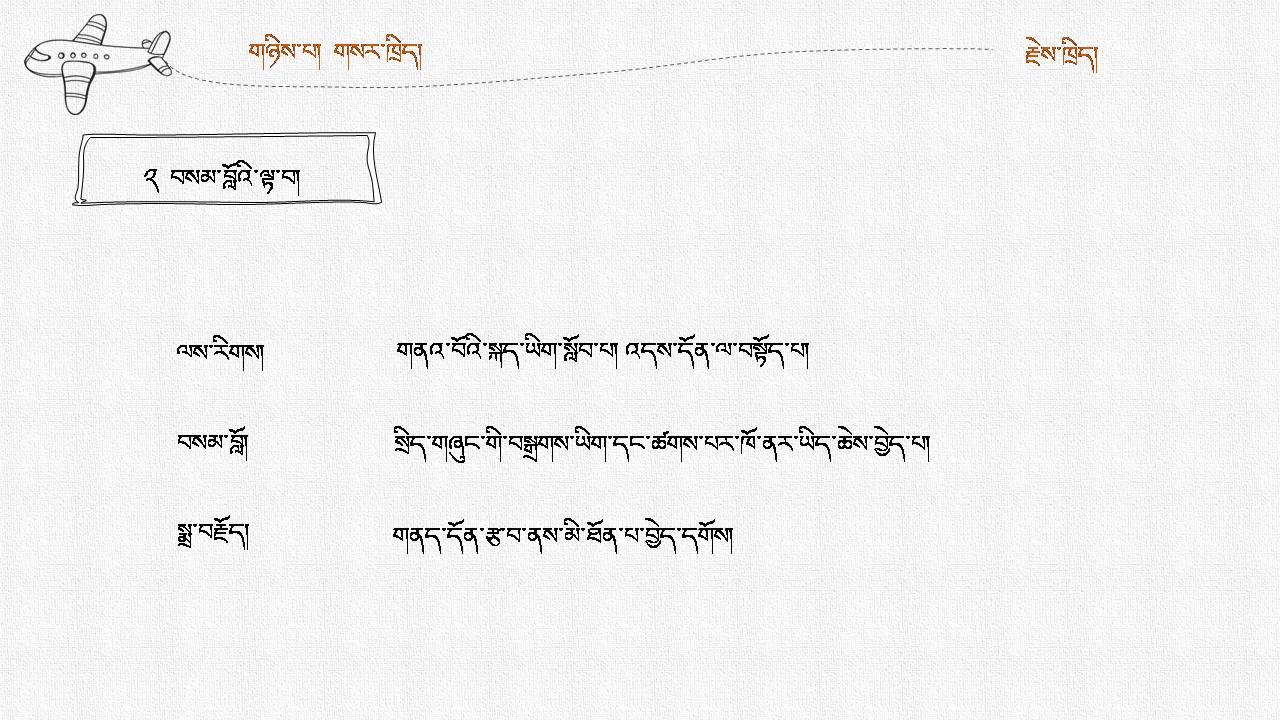 གཉིས་པ། གསར་ཁྲིད། རྗེས་ཁྲིད།
༢ བསམ་བློའི་ལྟ་བ།
ལས་རིགས། གནའ་བོའི་སྐད་ཡིག་སློབ་པ། འདས་དོན་ལ་བསྟོད་པ།
བསམ་བློ། སྲིད་གཞུང་གི་བསྒྲགས་ཡིག་དང་ཚགས་པར་ཁོ་ནར་ཡིད་ཆེས་བྱེད་པ།
སྨྲ་བརྗོད། གནད་དོན་རྩ་བ་ནས་མི་ཐོན་པ་བྱེད་དགོས།